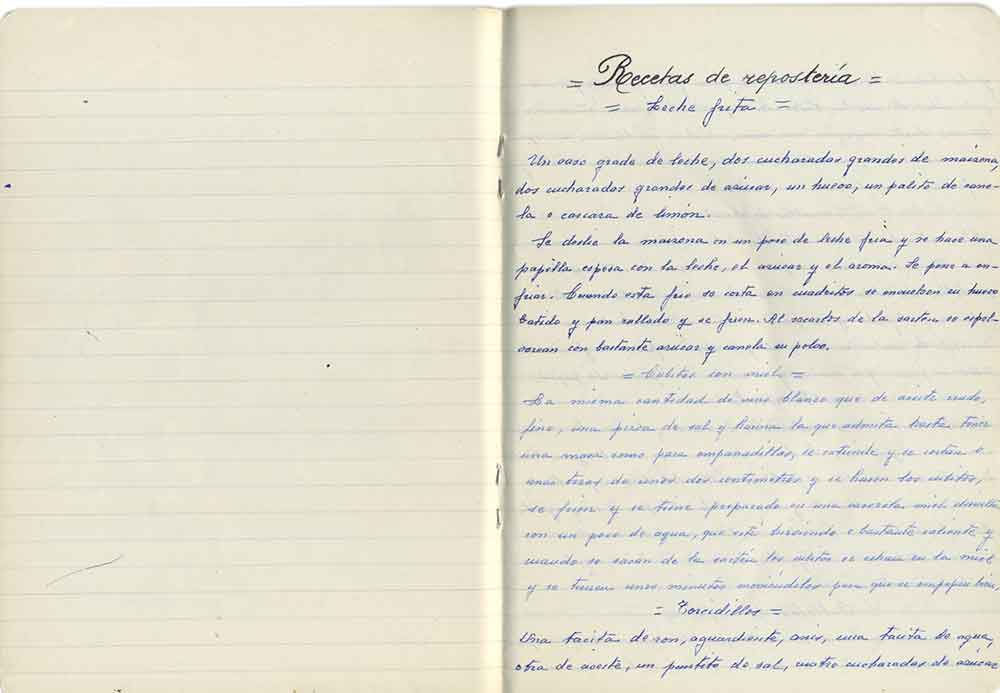 = Recetas de repostería =
= Leche frita =
Un vaso grade de leche, dos cucharadas grandes de maizena,
dos cucharadas grandes de azúcar, un huevo, un palito de cane-
la o cascara de limón.
Se deslie la maizena en un poco de leche fria y se hace una
papilla espesa con la leche, el azúcar y el aroma. Se pone a en-
friar. Cuando esta frio se corta en cuadritos se envuelven en huevo
batido y pan rallado y se frien. Al sacarlos de la sarten se espol-
vorean con bastante azúcar y canela en polvo.
= Cubitos con miel =
La misma cantidad de vino blanco que de aceite crudo,
fino, una pizca de sal y harina la que admita hasta tener
una masa como para empanadillas, se extiende y se cortan
unas tiras de unos dos centimetros y se hacen los cubitos,
se frien y se tiene preparado en una cacerola miel disuelta
con un poco de agua, que esté hirviendo o bastante caliente y
cuando se sacan de la sartén los cubitos se echan en la miel
y se tienen unos minutos moviéndolos para que se empapen bien.
= Torcidillos =
Una tacita de ron, aguardiente, anis, una tacita de agua,
otra de aceite, un puntito de sal, cuatro cucharadas de azúcar